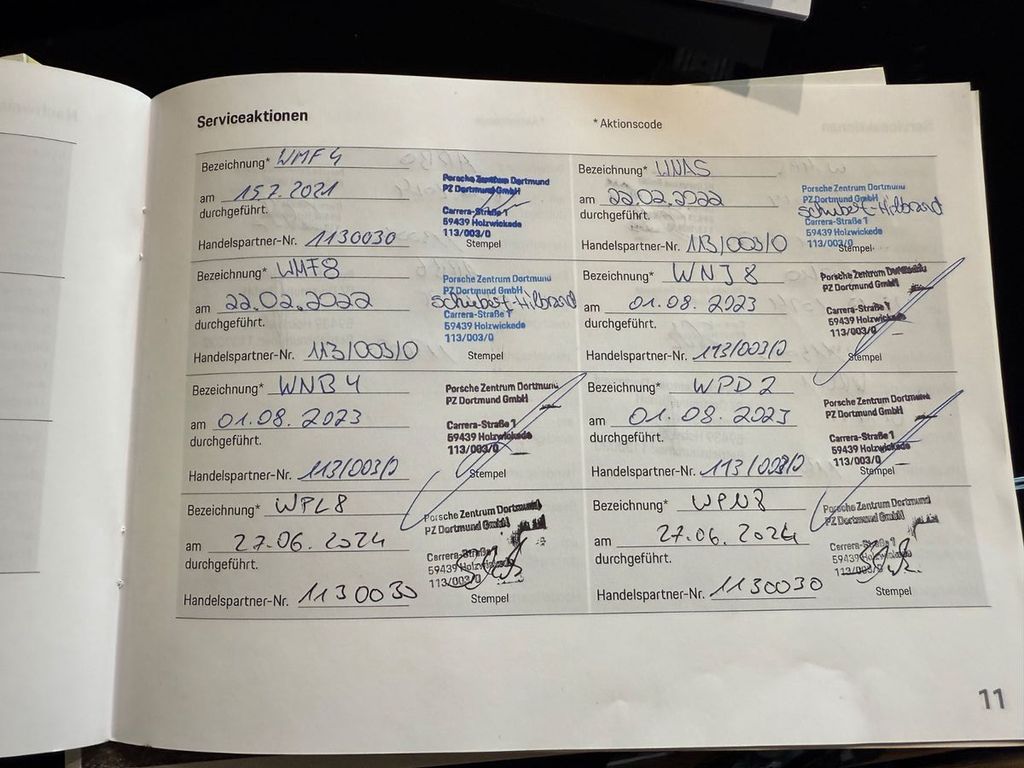 Serviceaktionen
* Aktionscode
Bezeichnung* WMF4
am 15.7.2021
durchgeführt.
Handelspartner-Nr. 1130030
Porsche Zentrum Dortmund
PZ Dortmund GmbH
Carrera-Straße 1
59439 Holzwickede
113/003/0
Stempel
Bezeichnung* WNA5
am 22.02.2022
durchgeführt.
Handelspartner-Nr. 113/003/0
Porsche Zentrum Dortmund
PZ Dortmund GmbH
Schubert-Hilbrand
Carrera-Straße 1
59439 Holzwickede
113/003/0
Stempel
Bezeichnung* WMF8
am 22.02.2022
durchgeführt.
Handelspartner-Nr. 113/003/0
Porsche Zentrum Dortmund
PZ Dortmund GmbH
Schubert-Hilbrand
Carrera-Straße 1
59439 Holzwickede
113/003/0
Stempel
Bezeichnung* WNJ8
am 01.08.2023
durchgeführt.
Handelspartner-Nr. 113/003/0
Porsche Zentrum Dortmund
PZ Dortmund GmbH
Carrera-Straße 1
59439 Holzwickede
113/003/0
Stempel
Bezeichnung* WNB4
am 01.08.2023
durchgeführt.
Handelspartner-Nr. 113/003/0
Porsche Zentrum Dortmund
PZ Dortmund GmbH
Carrera-Straße 1
59439 Holzwickede
113/003/0
Stempel
Bezeichnung* WPD2
am 01.08.2023
durchgeführt.
Handelspartner-Nr. 113/003/0
Porsche Zentrum Dortmund
PZ Dortmund GmbH
Carrera-Straße 1
59439 Holzwickede
113/003/0
Stempel
Bezeichnung* WPL8
am 27.06.2024
durchgeführt.
Handelspartner-Nr. 1130030
Porsche Zentrum Dortmund
PZ Dortmund GmbH
Carrera-Straße 1
59439 Holzwickede
113/003/0
Stempel
Bezeichnung* WPN8
am 27.06.2024
durchgeführt.
Handelspartner-Nr. 1130030
Porsche Zentrum Dortmund
PZ Dortmund GmbH
Carrera-Straße 1
59439 Holzwickede
113/003/0
Stempel
11